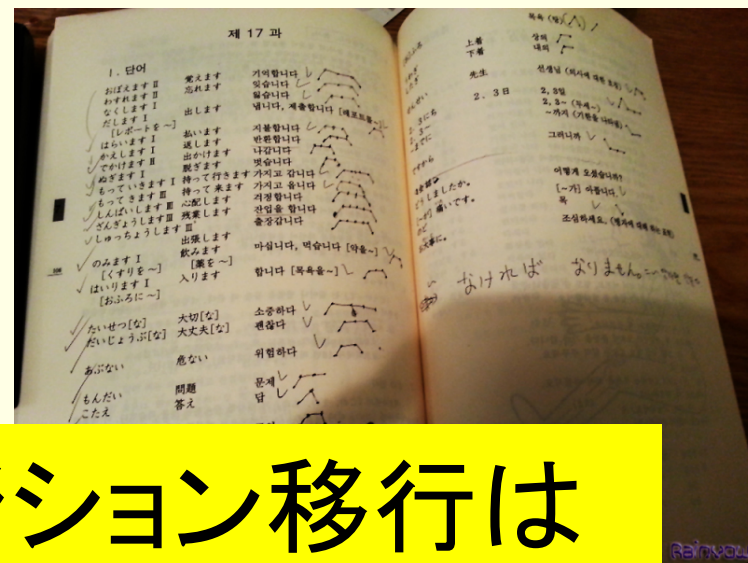 제 17 과
I. 단어
おぼえます II 覚えます 기억합니다
わすれます II 忘れます 잊습니다
なくします I 잃습니다
だします I 出します 냅니다, 제출합니다 [레포트를~]
[レポートを~]
はらいます I 払います 지불합니다
かえします I 返します 반환합니다
でかけます II 出かけます 나갑니다
ぬぎます I 脱ぎます 벗습니다
もっていきます I 持って行きます 가지고 갑니다
もってきます III 持って来ます 가지고 옵니다
しんぱいします III 心配します 걱정합니다
ざんぎょうします III 残業します 잔업을 합니다
しゅっちょうします III 出張します 출장갑니다
のみます I 飲みます 마십니다, 먹습니다 [약을~]
[くすりを~] [薬を~]
はいります I 入ります 합니다 [목욕을~]
[おふろに~]
たいせつ[な] 大切[な] 소중하다
だいじょうぶ[な] 大丈夫[な] 괜찮다
あぶない 危ない 위험하다
もんだい 問題 문제
こたえ 答え 답
목욕 (탕)
上着 상의
下着 내의
先生 선생님
2、3日 2, 3일
2, 3~
~까지
그러니까
어떻게 오셨습니까?
痛いです。 [~가] 아픕니다.
목
조심하세요.
なければ なりません。
ション移行は
Rainyou